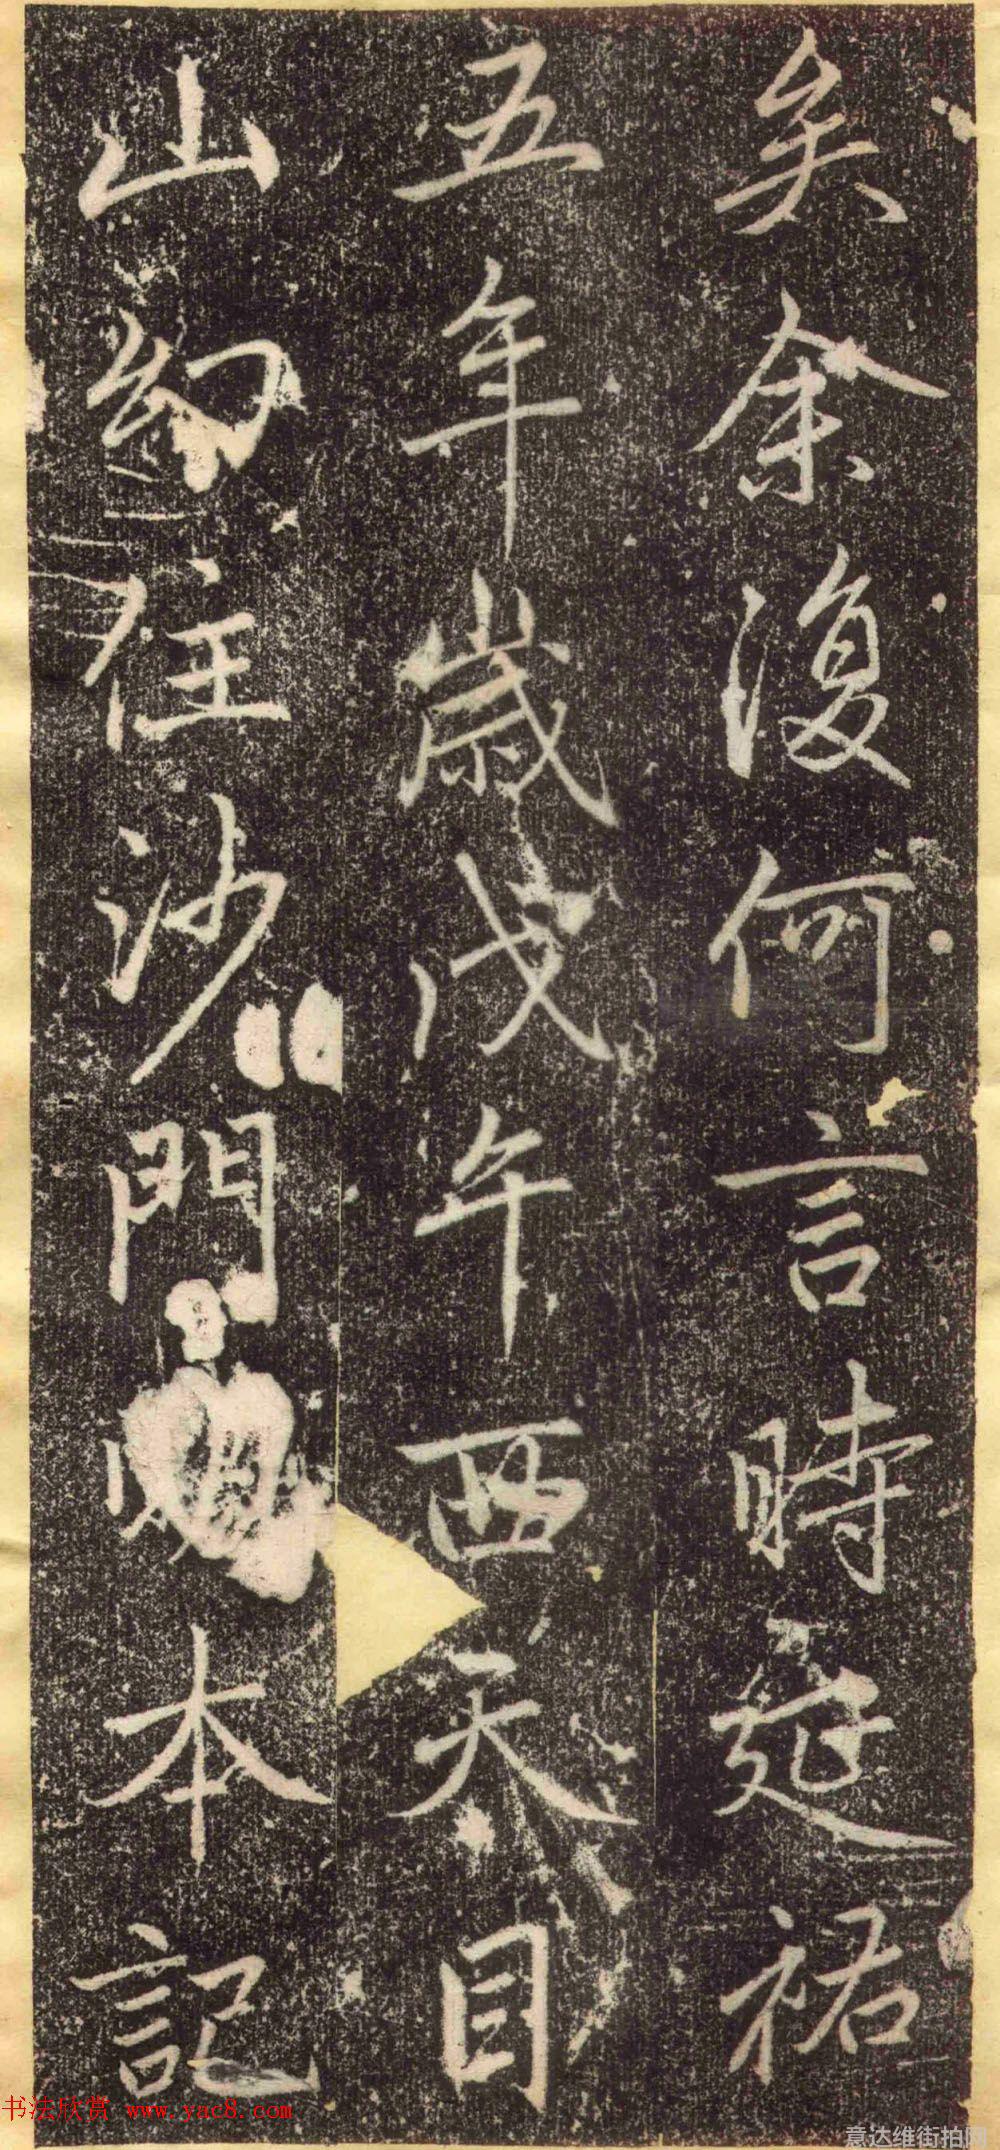 矣余復何言時延祐
五年歲戊午西天目
山幻住沙門明本記
书法欣赏 www.yac8.com
意达维街拍网